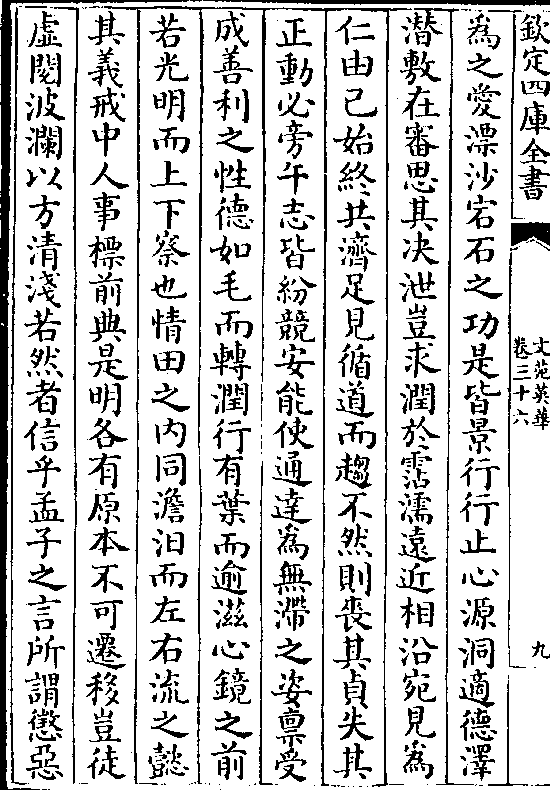 欽定四庫全書
文苑英華
卷三十六
九
為之愛漂沙宕石之功是皆景行行止心源洞適德澤
潜敷在審思其决泄豈求潤於霑濡遠近相沿宛見為
仁由己始終共濟足見循道而趨不然則喪其貞失其
正動必旁午志皆紛競安能使通達為無滯之姿禀受
成善利之性德如毛而轉潤行有葉而逾滋心鏡之前
若光明而上下察也情田之内同澹汨而左右流之懿
其義戒中人事標前典是明各有原本不可遷移豈徒
虛閱波瀾以方清淺若然者信乎孟子之言所謂懲惡